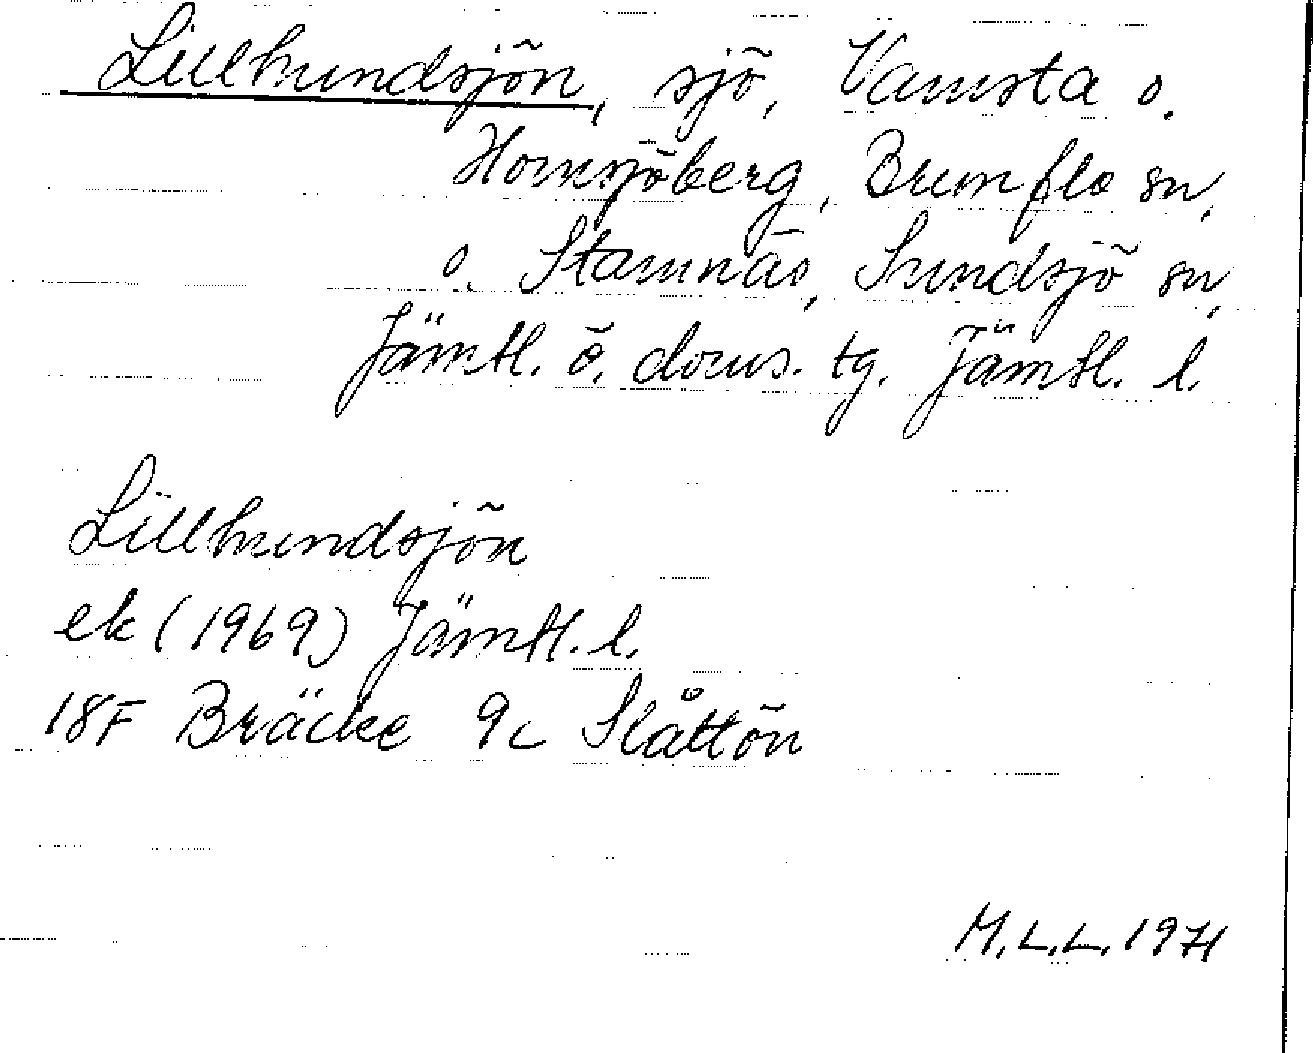 Lillhundsjön, sjö, Vamsta o.
Hornsjöberg, Brunflo sn,
o. Stamnäs, Sundsjö sn,
Jämtl. ö. doms. tg. Jämtl. l.
Lillhundsjön
ek (1969) Jämtl. l.
18F Bräcke 9c Slåttön
M.L.L. 1971